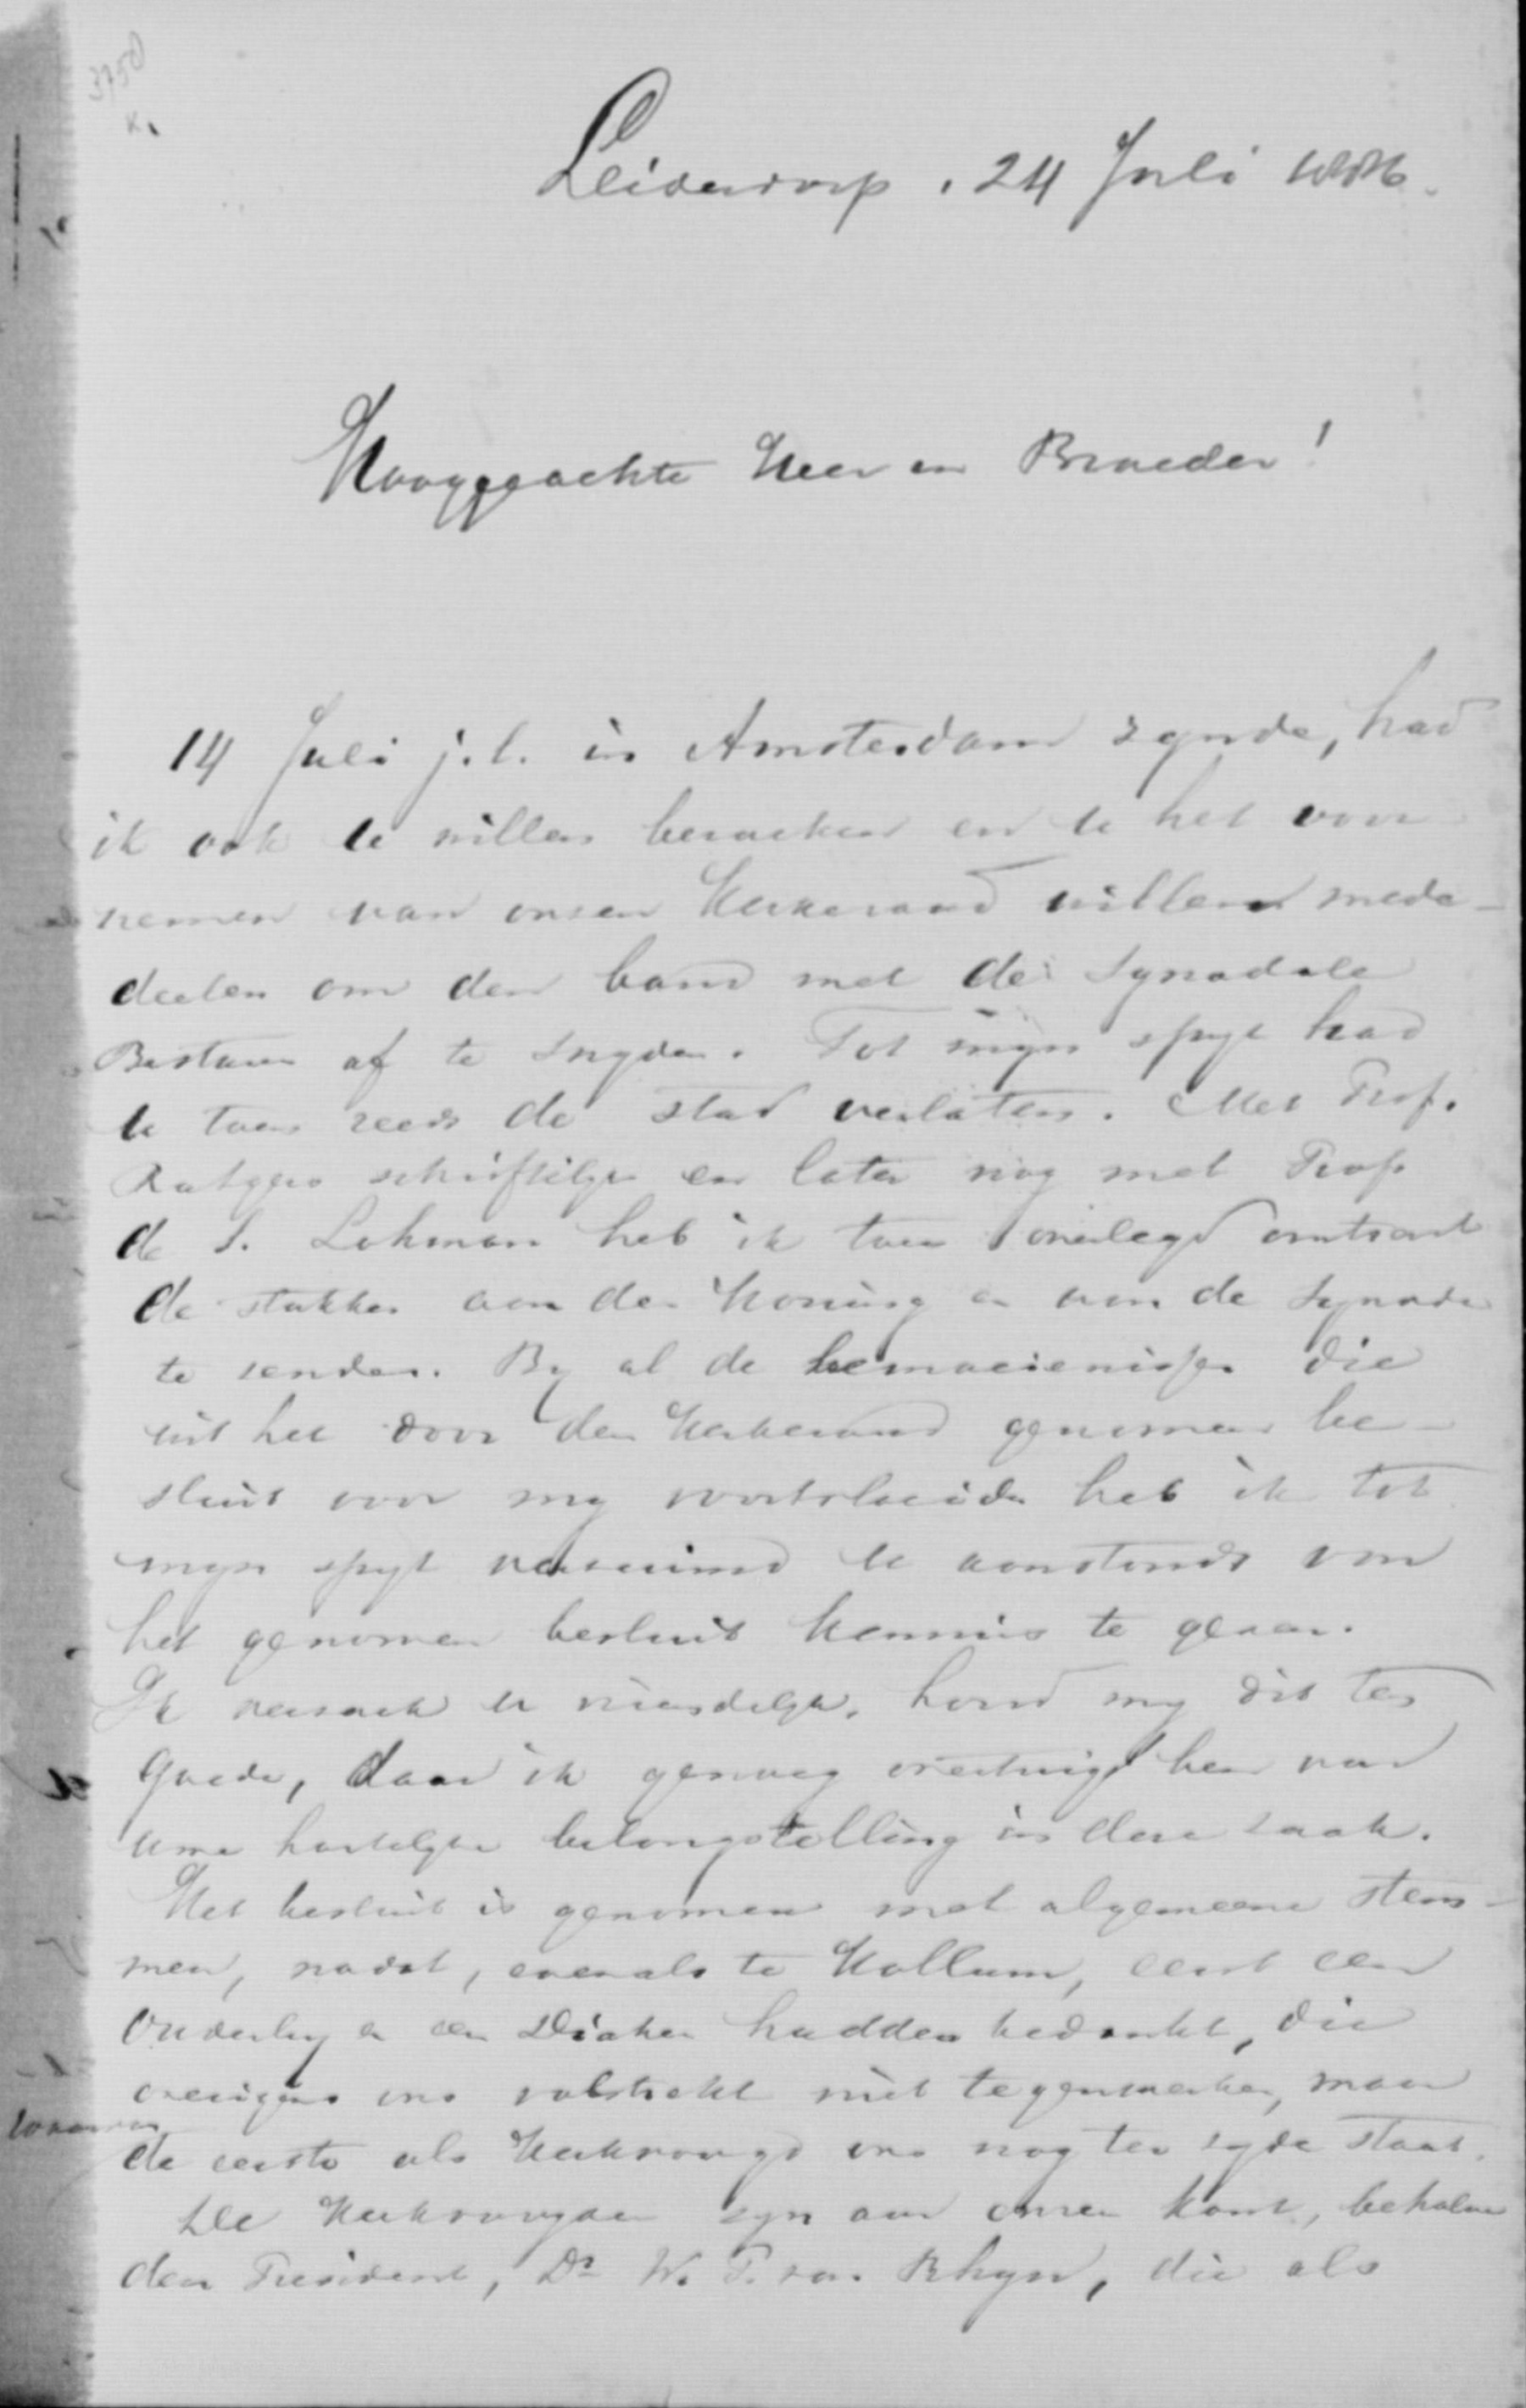 3750
K.
Leiderdorp, 24 Juli 1886.
Hooggeachte Heer en Broeder!
14 Juli j.l. in Amsterdam zynde, had
ik ook U willen bezoeken en U het voor
nemen van onzen Kerkeraad willen mede-
deelen om den band met de Synodale
Besturen af te snyden. Tot mijn spyt had
U toen reeds de stad verlaten. Met Prof.
Rutgers schriftelyk en later nog met Prof
de S. Lohman heb ik toen overlegd omtrent
de stukken aan den Koning en aan de Synode
te zenden. By al de bemoeienissen die
uit het door den Kerkeraad genomen be-
sluit voor my voortvloeiden heb ik tot
myn spyt verzuimd U aanstonds van
het genomen besluit kennis te geven.
Ik verzoek U vriendelyk, houd my dit ten
goede, daar ik genoeg overtuigd ben van
Uwe hartelyke belangstelling in deze zaak.
Het besluit is genomen met algemeene stem-
men, nadat, evenals te Kollum, eerst een
Ouderling en een Diaken hadden bedankt, die
overigens ons volstrekt niet tegenwerken, maar
waarvan
de eerste als Kerkvoogd ons nog ter zyde staat.
De Kerkvoogden zyn aan onzen kant, behalve
den President, Dr W. T. van Rhyn, die als